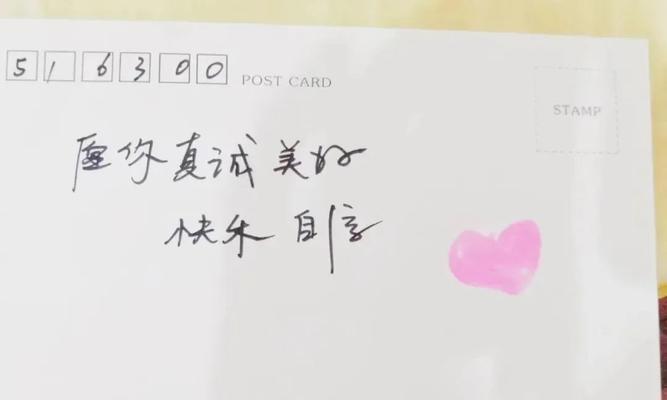 516300 POST CARD
STAMP
愿你真诚美好
快乐自信